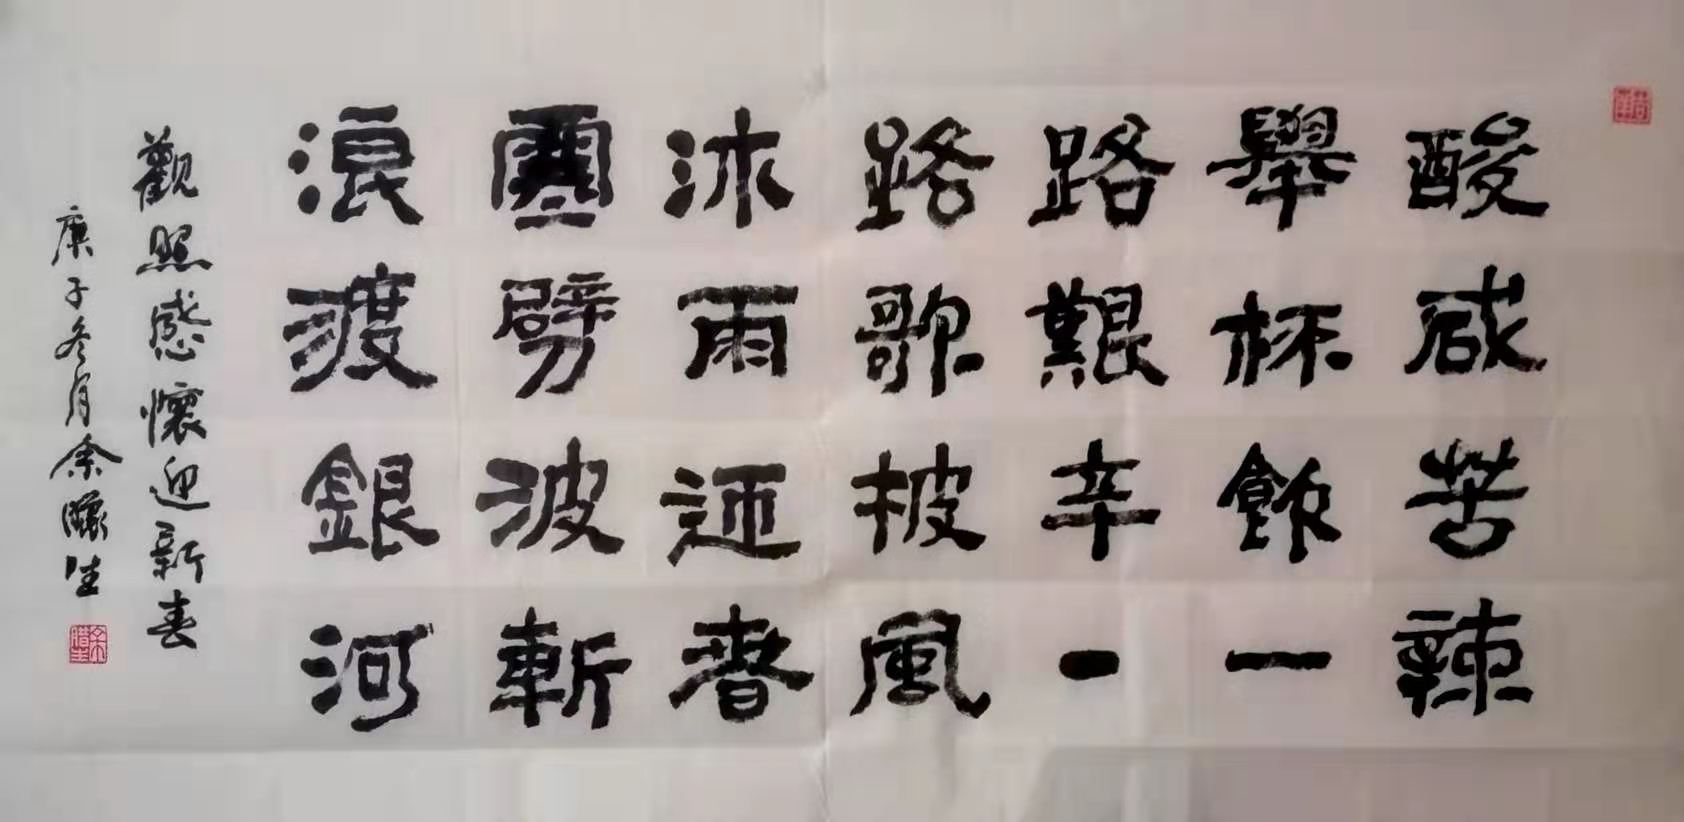 酸咸苦辣
舉杯飲一
路艱辛一
路歌披風
沐雨迎春
雪劈波斬
浪渡銀河
觀照感懷迎新春
庚子冬月余臘生